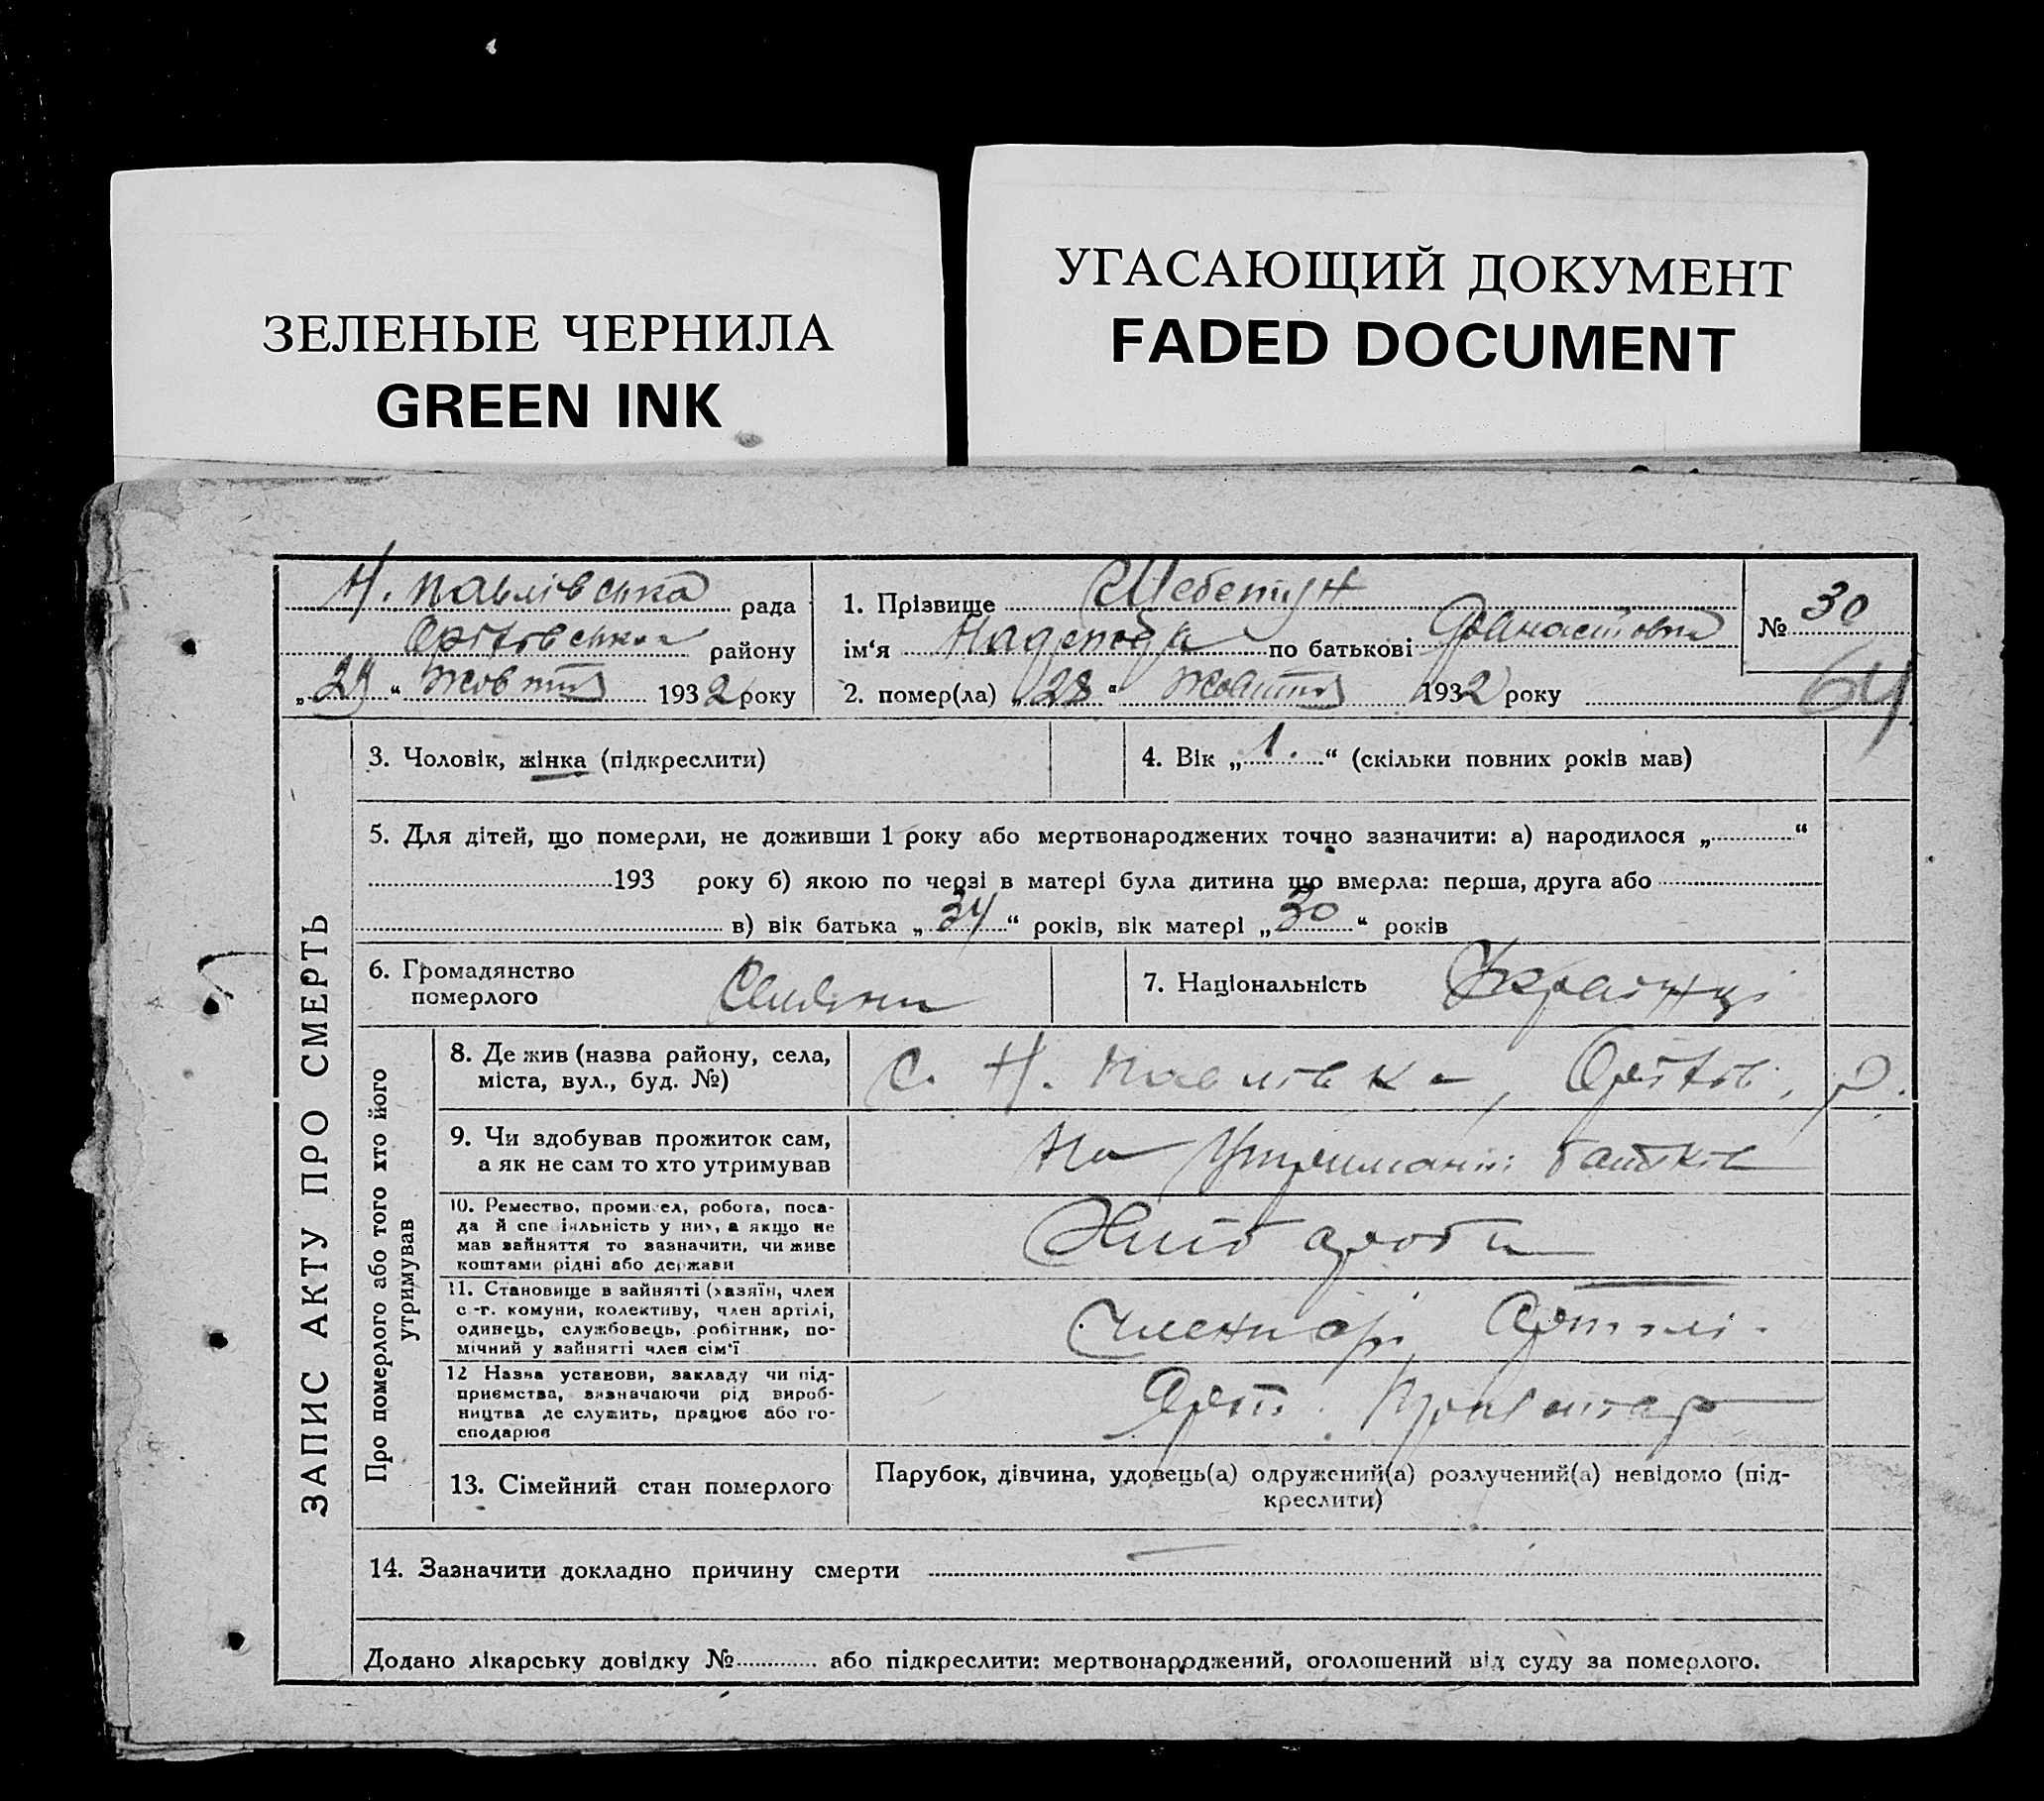 ЗЕЛЕНЫЕ ЧЕРНИЛА
GREEN INK
УГАСАЮЩИЙ ДОКУМЕНТ
FADED DOCUMENT
Н. Павлівська рада
району
„29“ Жовтня 1932 року
1. Прізвище Шебетун
ім‘я Надежда по батькові
2. помер(ла) „28“ Жовтня 1932 року
№ 30
64
ЗАПИС АКТУ ПРО СМЕРТЬ
3. Чоловік, жінка (підкреслити)
4. Вік „1.“ (скільки повних років мав)
5. Для дітей, що померли, не доживши 1 року або мертвонароджених точно зазначити: а) народилося „ “
193 року б) якою по черзі в матері була дитина що вмерла: перша, друга або
в) вік батька „34“ років, вік матері „30“ років
6. Громадянство
померлого
7. Національність Українці
Про померлого або того хто його
утримував
8. Де жив (назва району, села,
міста, вул., буд. №)
с. Н. Павлівка, р.
9. Чи здобував прожиток сам,
а як не сам то хто утримував
На Утриманні батьків
10. Ремество, промисел, робота, поса-
да й спеціяльність у них, а якщо не
мав зайняття то зазначити, чи живе
коштами рідні або держави
Хліб
11. Становище в зайнятті (хазяїн, член
с.-г. комуни, колективу, член артілі,
одинець, службовець, робітник, по-
мічний у зайнятті член сім‘ї
Артілі
12 Назва установи, закладу чи під-
приємства, зазначаючи рід вироб-
ництва де служить, працює або го-
сподарює
Арт.
13. Сімейний стан померлого
Парубок, дівчина, удовець(а) одружений(а) розлучений(а) невідомо (під-
креслити)
14. Зазначити докладно причину смерти
Додано лікарську довідку № або підкреслити: мертвонароджений, оголошений від суду за померлого.